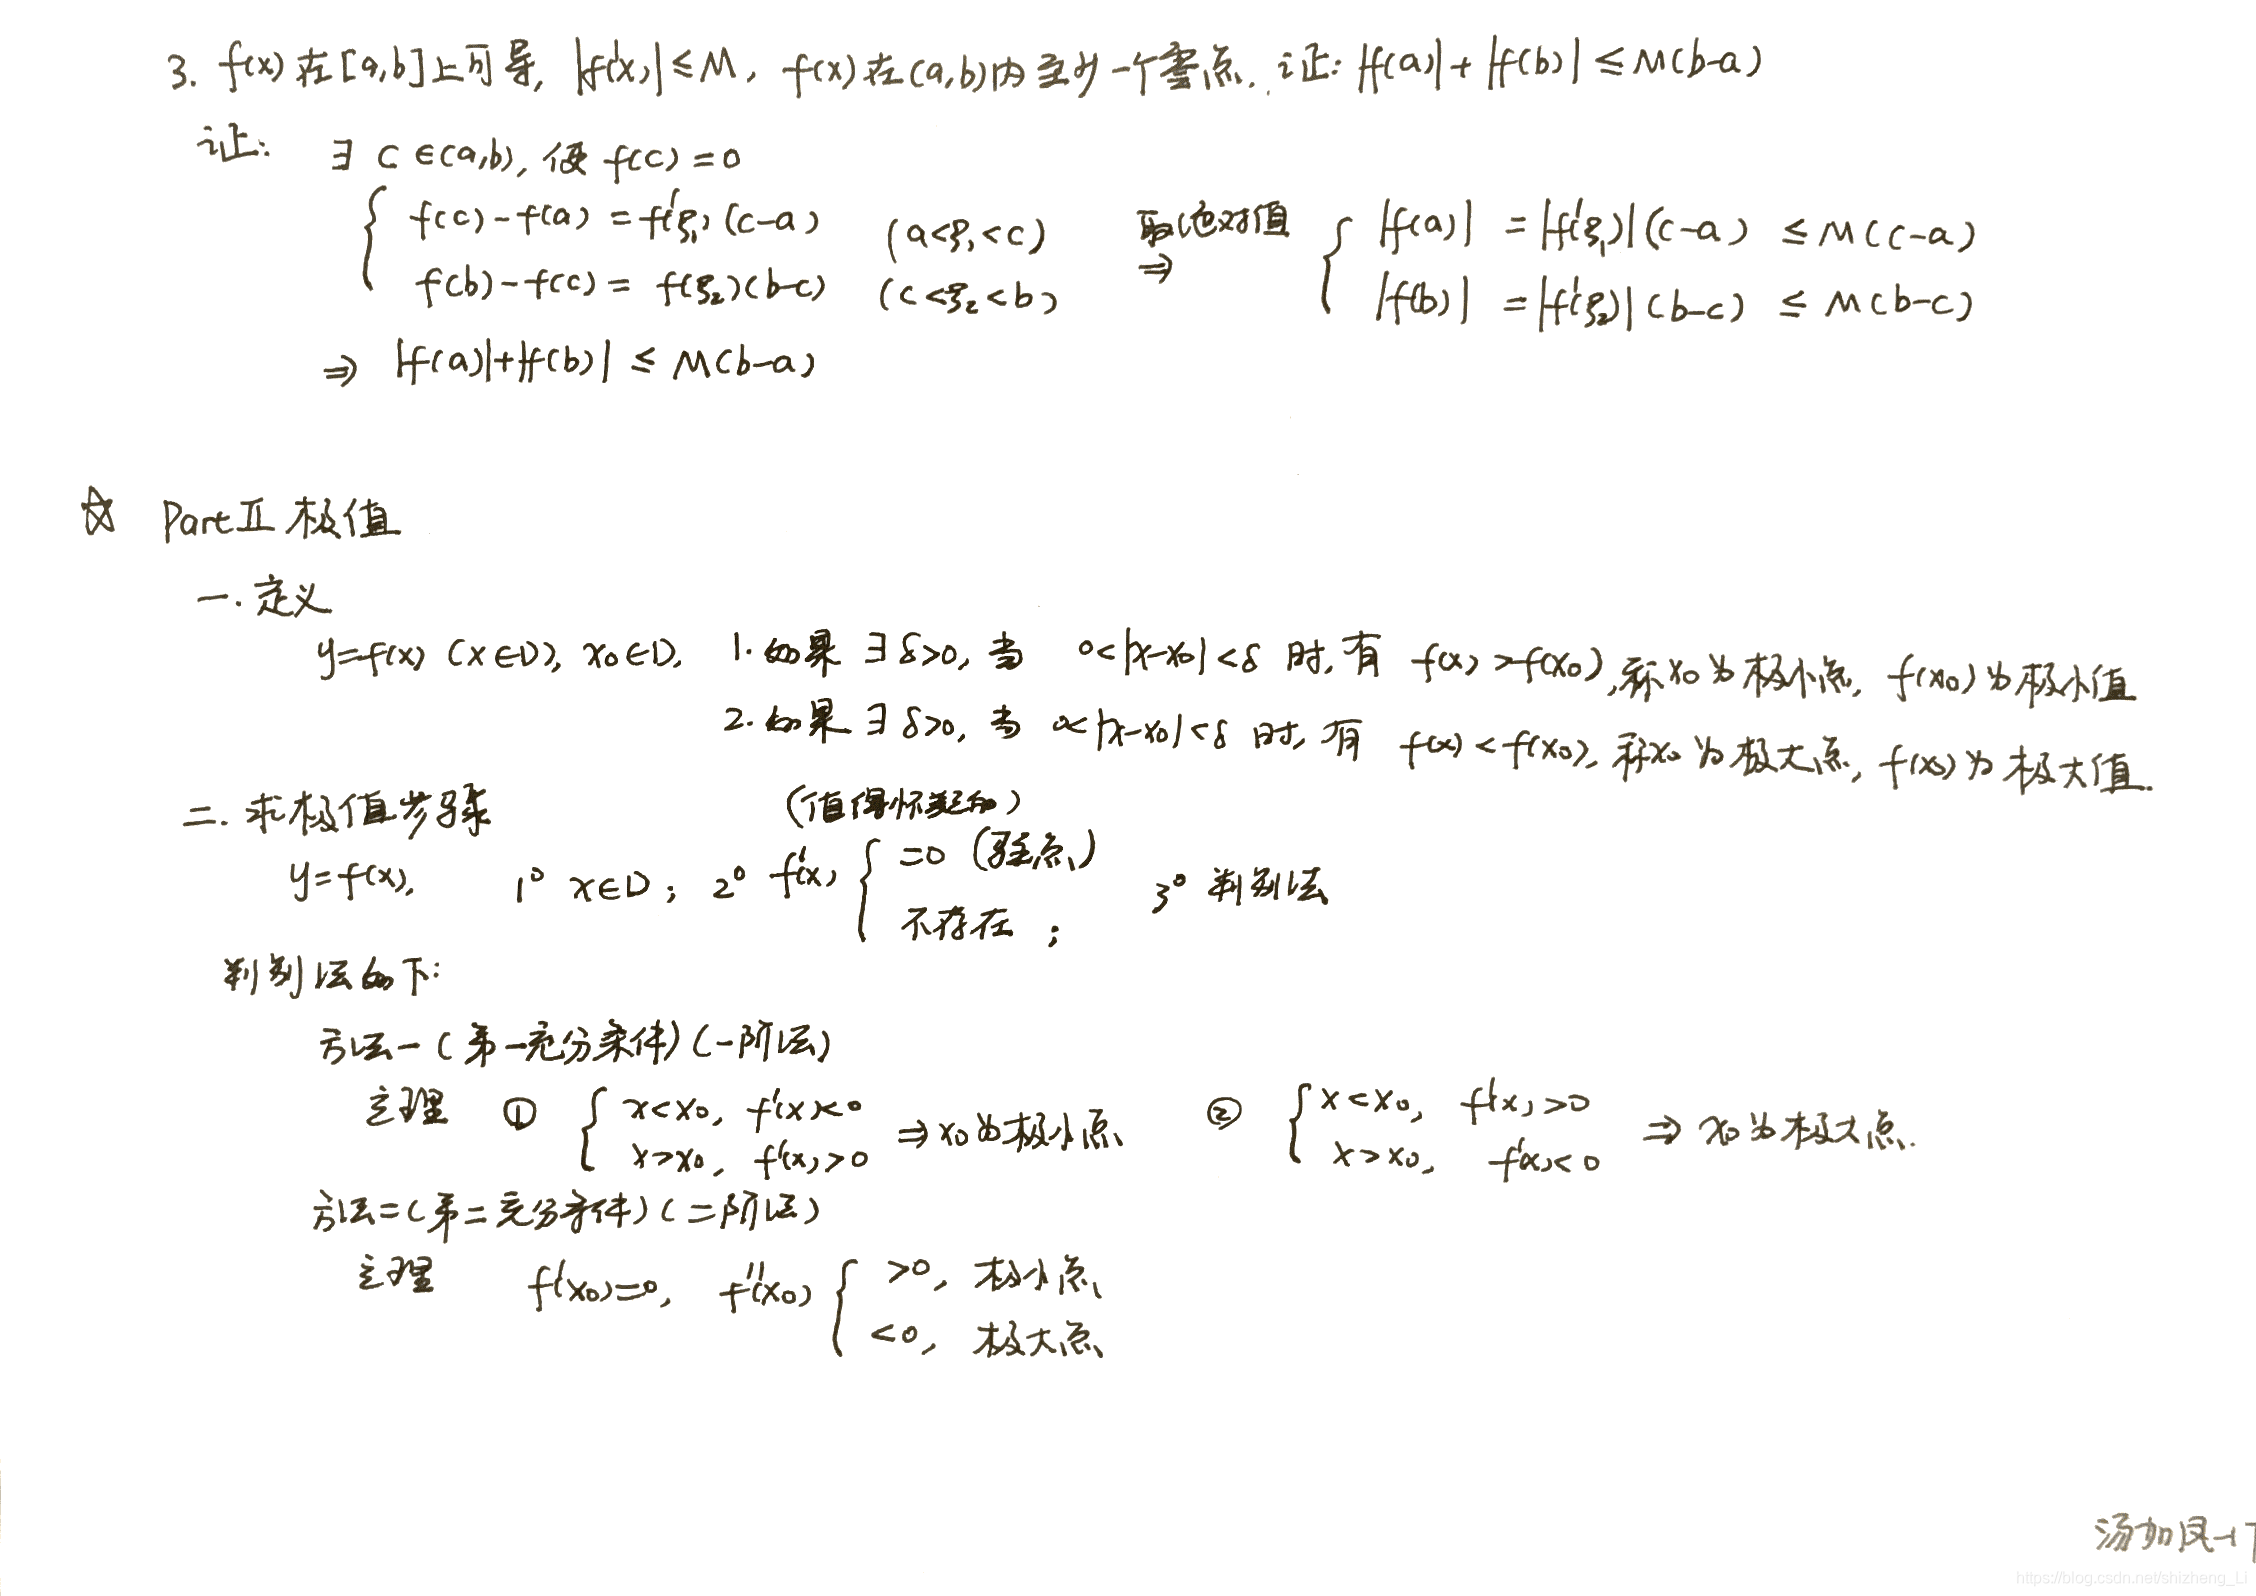 3. f(x)在[a,b]上可导, |f'(x)|≤M, f(x)在(a,b)内至少一个零点. 证: |f(a)|+|f(b)|≤M(b-a)
证: ∃ c∈(a,b), 使 f(c)=0
{ f(c)-f(a)=f'(ξ₁)(c-a) (a<ξ₁<c) 取绝对值 ⇒ { |f(a)| =|f'(ξ₁)|(c-a) ≤M(c-a)
f(b)-f(c)= f(ξ₂)(b-c) (c<ξ₂<b) |f(b)| =|f'(ξ₂)|(b-c) ≤ M(b-c)
⇒ |f(a)|+|f(b)| ≤ M(b-a)
☆ Part Ⅱ 极值
一. 定义
y=f(x) (x∈D), x₀∈D, 1. 如果 ∃ δ>0, 当 0<|x-x₀|<δ 时, 有 f(x)>f(x₀), 称x₀为极小点, f(x₀)为极小值
2. 如果 ∃ δ>0, 当 0<|x-x₀|<δ 时, 有 f(x)<f(x₀), 称x₀为极大点, f(x₀)为极大值.
二. 求极值步骤 (值得怀疑的)
y=f(x), 1° x∈D; 2° f'(x) { =0 (驻点) 3° 判别法
不存在 ;
判别法如下:
方法一(第一充分条件)(一阶法)
定理 ① { x<x₀, f'(x)<0 ⇒x₀为极小点 ② { x<x₀, f'(x)>0 ⇒ x₀为极大点.
x>x₀, f'(x)>0 x>x₀, f'(x)<0
方法二(第二充分条件)(二阶法)
定理 f'(x₀)=0, f''(x₀) { >0, 极小点
<0, 极大点
汤加凤-17
https://blog.csdn.net/shizheng_Li